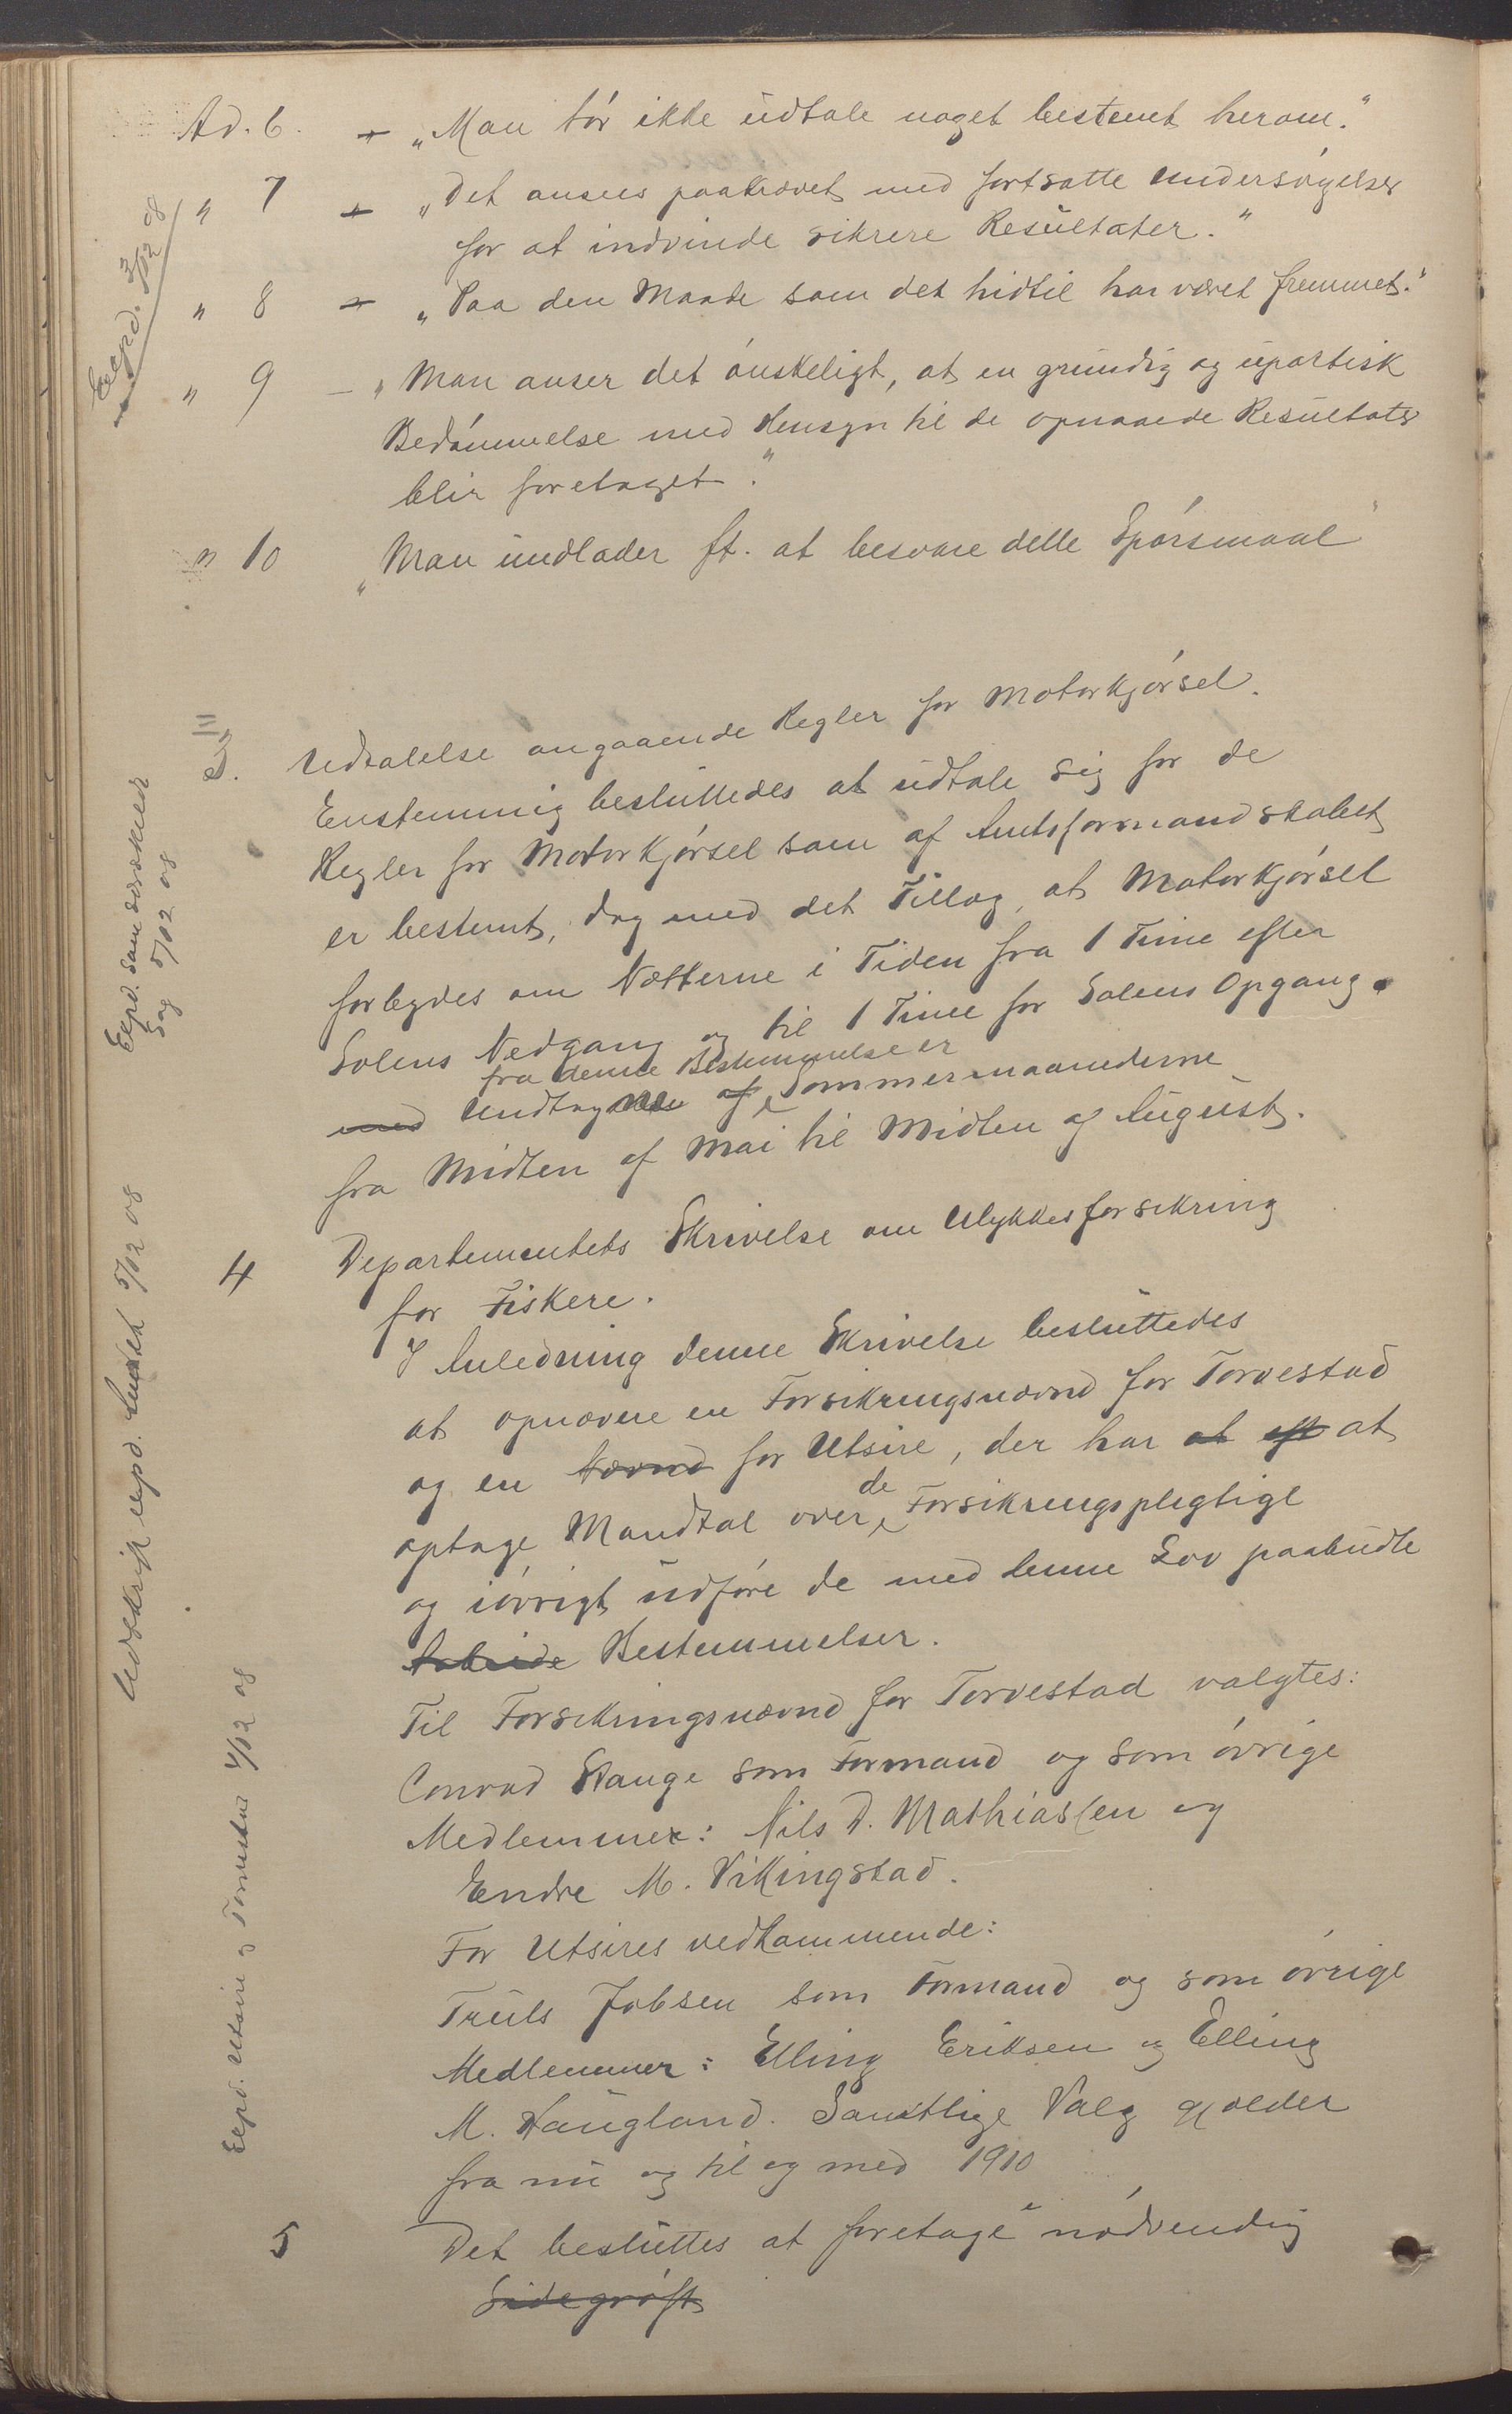 Ad. 6. + „Man tór ikke udtale noget bestemt herom."
" 7 + „Det ansees paakrævet med fortsatte Undersógelser
for at indvinde sikrere Resultater."
" 8 + „Paa den Maade som det hidtil har været fremmet."
" 9 - „Man anser det ónskeligt, at en grundig og upartisk
Bedómmelse med Hensyn til de opnaaede Resultater
blir foretaget."
" 10 „Man undlader ft. at besvare dette Spórsmaal"
Expd. 3/12 08
3. Udtalelse angaaende Regler for Motorkjórsel.
Enstemmig besluttedes at udtale sig for de
Regler for Motorkjórsel som af Amtsformandskabet
er bestemt, dog med det Tillæg, at Motorkjórsel
forbydes om Nætterne i Tiden fra 1 Time efter
Solens Nedgang og til 1 Time for Solens Opgang.
fra denne Bestemmelse er
med Undtagne af Sommermaanederne
fra Midten af Mai til Midten af August.
Expd. som særskilt
Sag 5/12 08
4 Departementets Skrivelse om Ulykkesforsikring
for Fiskere.
I Anledning denne Skrivelse besluttedes
at opnævne en Forsikringsnævnd for Torvestad
og en Nævnd for Utsire, der har at eft at
optage Mandtal over de Forsikringspligtige
og ióvrigt udfóre de med denne Lov paabudte
Arbeide Bestemmelser.
Til Forsikringsnævnd for Torvestad valgtes:
Conrad Stange som Formand og som óvrige
Medlemmer: Nils D. Mathiassen og
Endre M. Vikingstad.
For Utsires vedkommende:
Truls Jobsen som Formand og som óvrige
Medlemmer: Elling Eriksen og Elling
M. Haugland. Samtlige Valg gjælder
fra nu og til og med 1910
Udskrift expd. 5/12 08
Expd. Utsire og Torvestad 4/12 08
5 Det besluttes at foretage nódvendig
Sidegróft